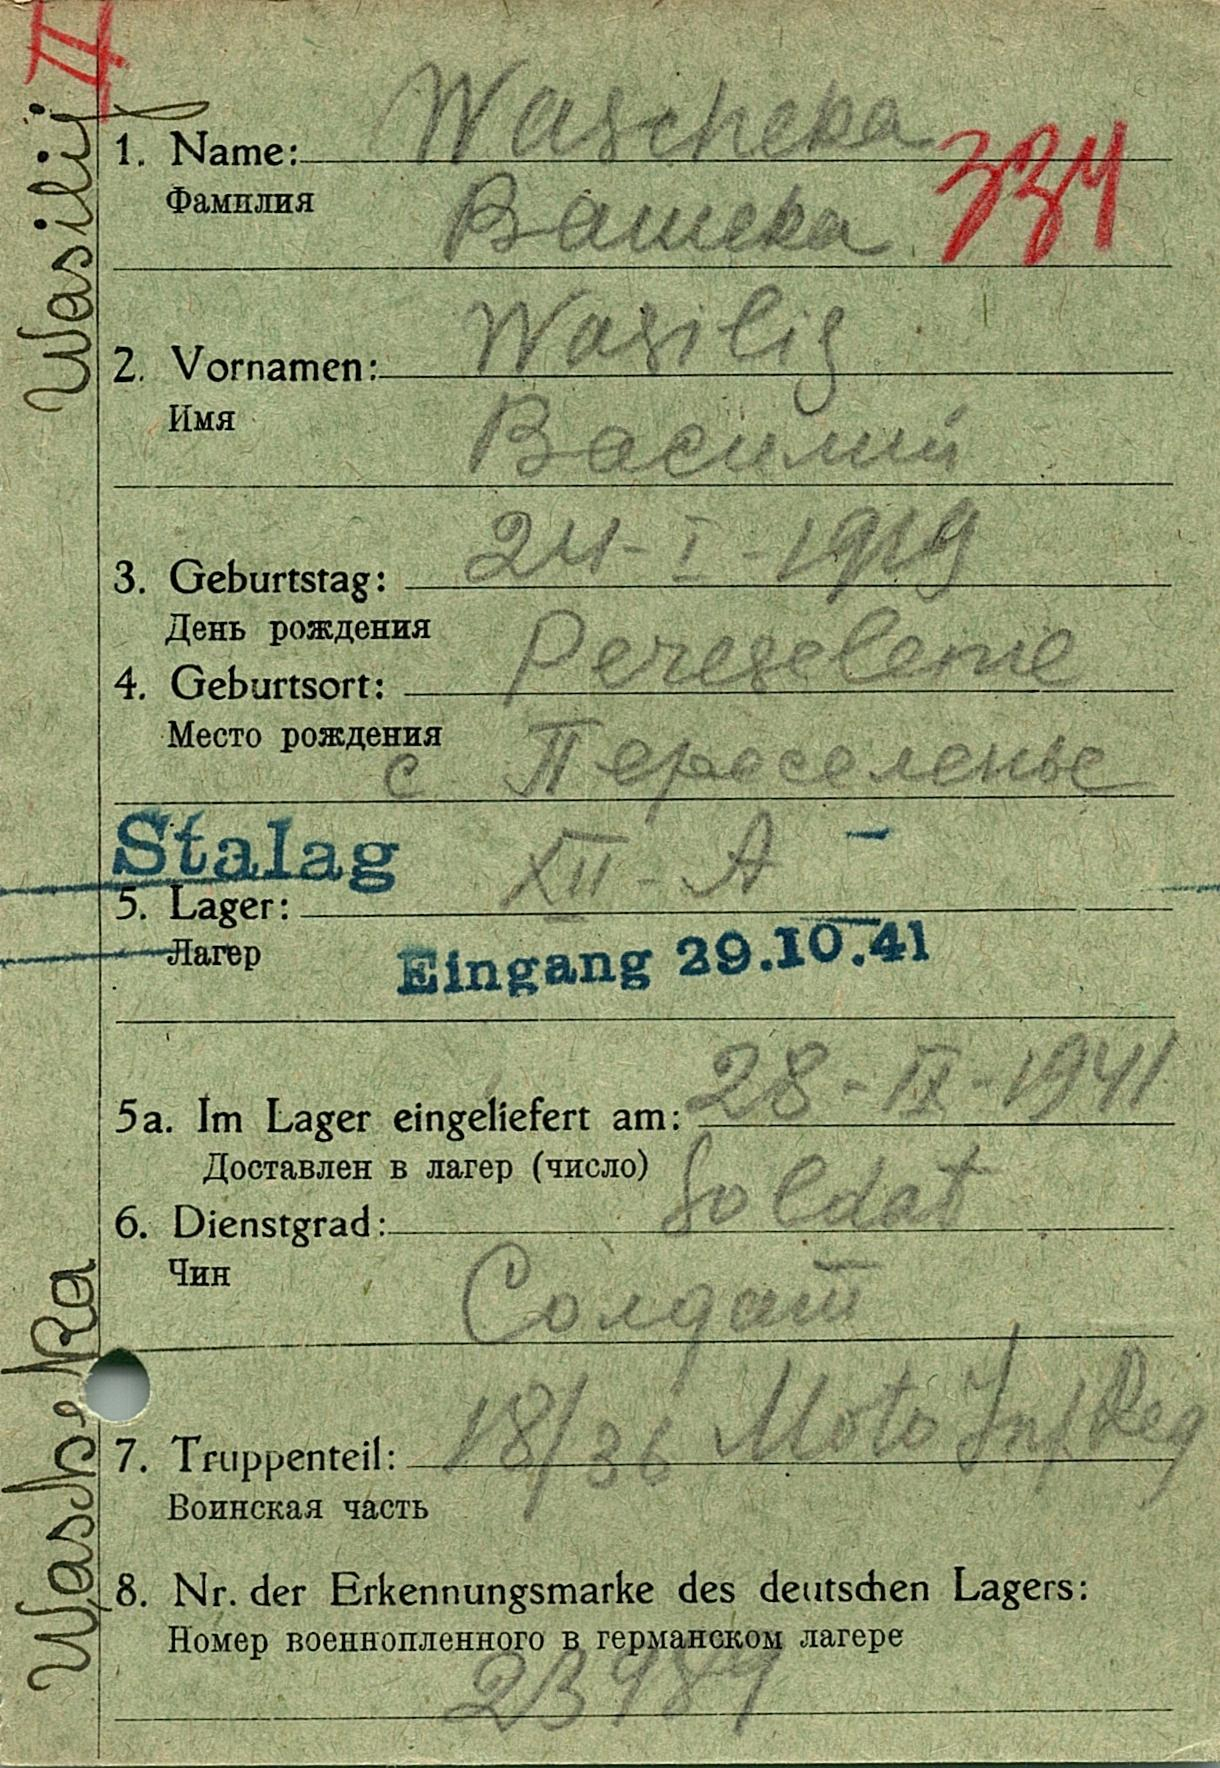 II
Wascheka Wasilij
1. Name: Wascheka
Фамилия Вашека
334
2. Vornamen: Wasilij
Имя Василий
3. Geburtstag: 24-I-1919
День рождения
4. Geburtsort: Pereselenie
Место рождения
с Переселенье
Stalag XII-A
5. Lager:
Лагер
Eingang 29.10.41
5a. Im Lager eingeliefert am: 28-IX-1941
Доставлен в лагер (число)
6. Dienstgrad: Soldat
Чин Солдат
7. Truppenteil: 18/36 Moto Inf Reg
Воинская часть
8. Nr. der Erkennungsmarke des deutschen Lagers:
Номер военнопленного в германском лагере